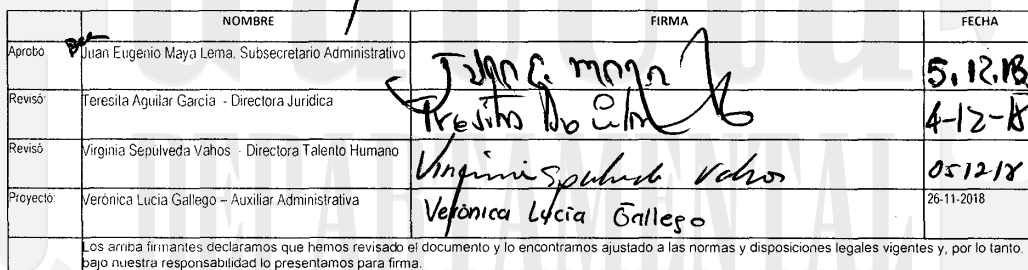 NOMBRE FIRMA FECHA
Aprobó Juan Eugenio Maya Lema. Subsecretario Administrativo Juan E. Maya 5.12.18
Revisó Teresita Aguilar García - Directora Jurídica Teresita Aguilar 4-12-18
Revisó Virginia Sepúlveda Vahos - Directora Talento Humano Virginia Sepulveda Vahos 051218
Proyectó: Verónica Lucia Gallego – Auxiliar Administrativa Verónica Lucia Gallego 26-11-2018
Los arriba firmantes declaramos que hemos revisado el documento y lo encontramos ajustado a las normas y disposiciones legales vigentes y, por lo tanto,
bajo nuestra responsabilidad lo presentamos para firma.
DEPARTAMENTAL